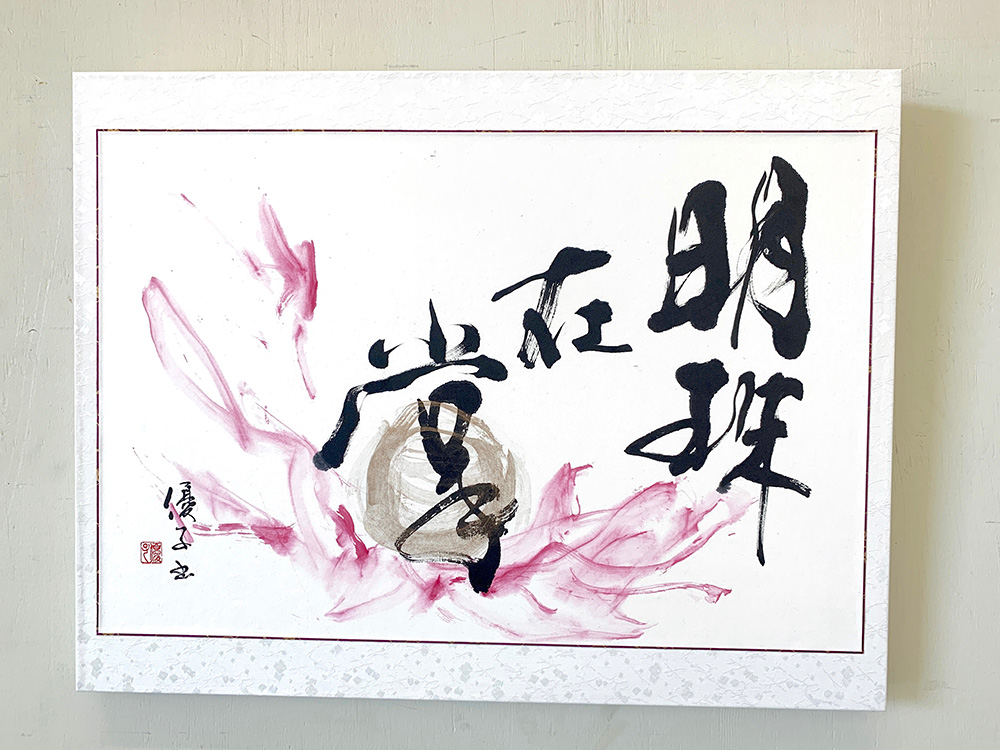 明珠
在
掌
優子書